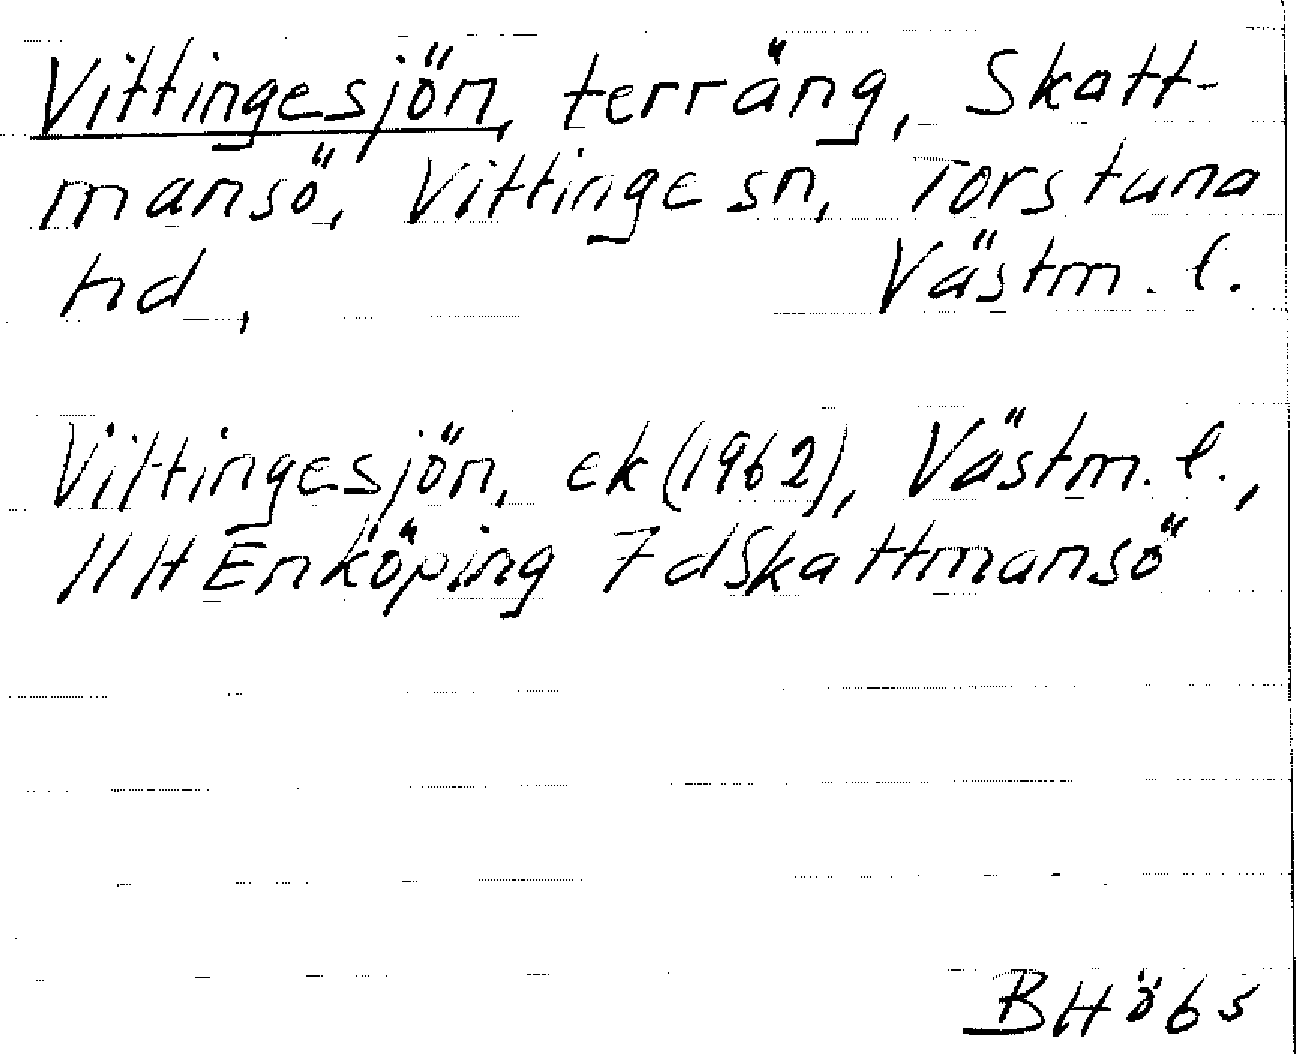 Vittingesjön, terräng, Skatt-
mansö, Vittinge sn, Torstuna
hd, Västm. l.
Vittingesjön, ek (1962), Västm. l.,
11H Enköping 7d Skattmansö
BHö65